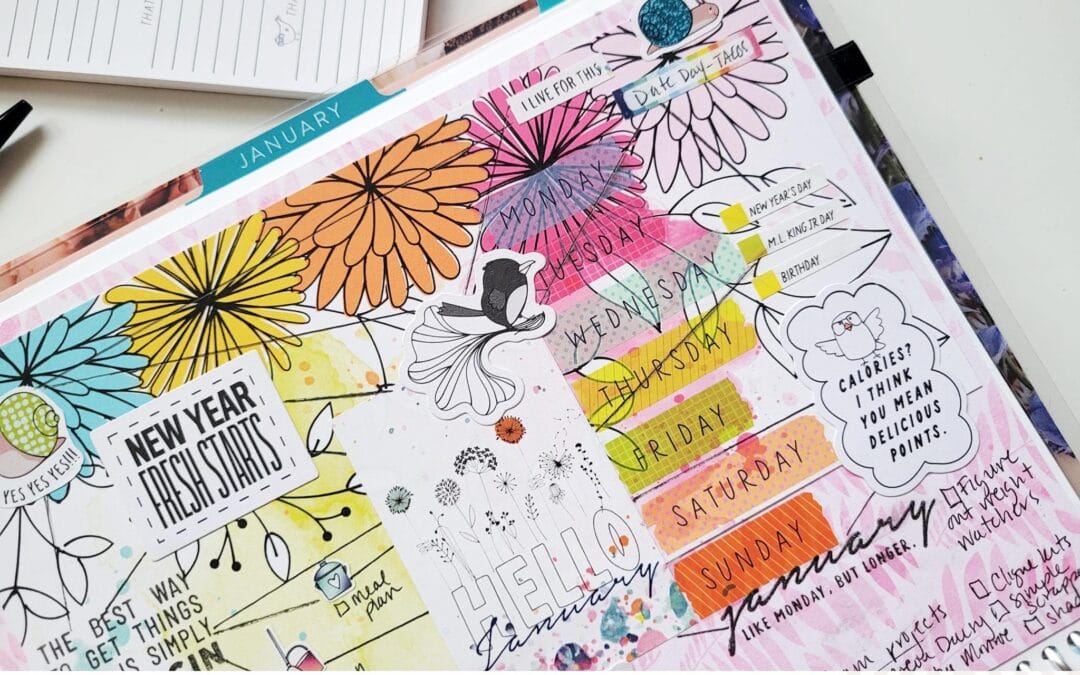 THAT
JANUARY
I LIVE FOR THIS
Date Day - TACOS
MONDAY
TUESDAY
WEDNESDAY
THURSDAY
FRIDAY
SATURDAY
SUNDAY
NEW YEAR'S DAY
M.L. KING JR. DAY
BIRTHDAY
CALORIES?
I THINK
YOU MEAN
DELICIOUS
POINTS.
YES YES YES!!!
NEW YEAR
FRESH STARTS
HELLO
January
january
LIKE MONDAY, BUT LONGER.
meal
plan
THE BEST WAY
TO GET THINGS
IS SIMPLY
Figure
out weight
watchers?
simple
projects